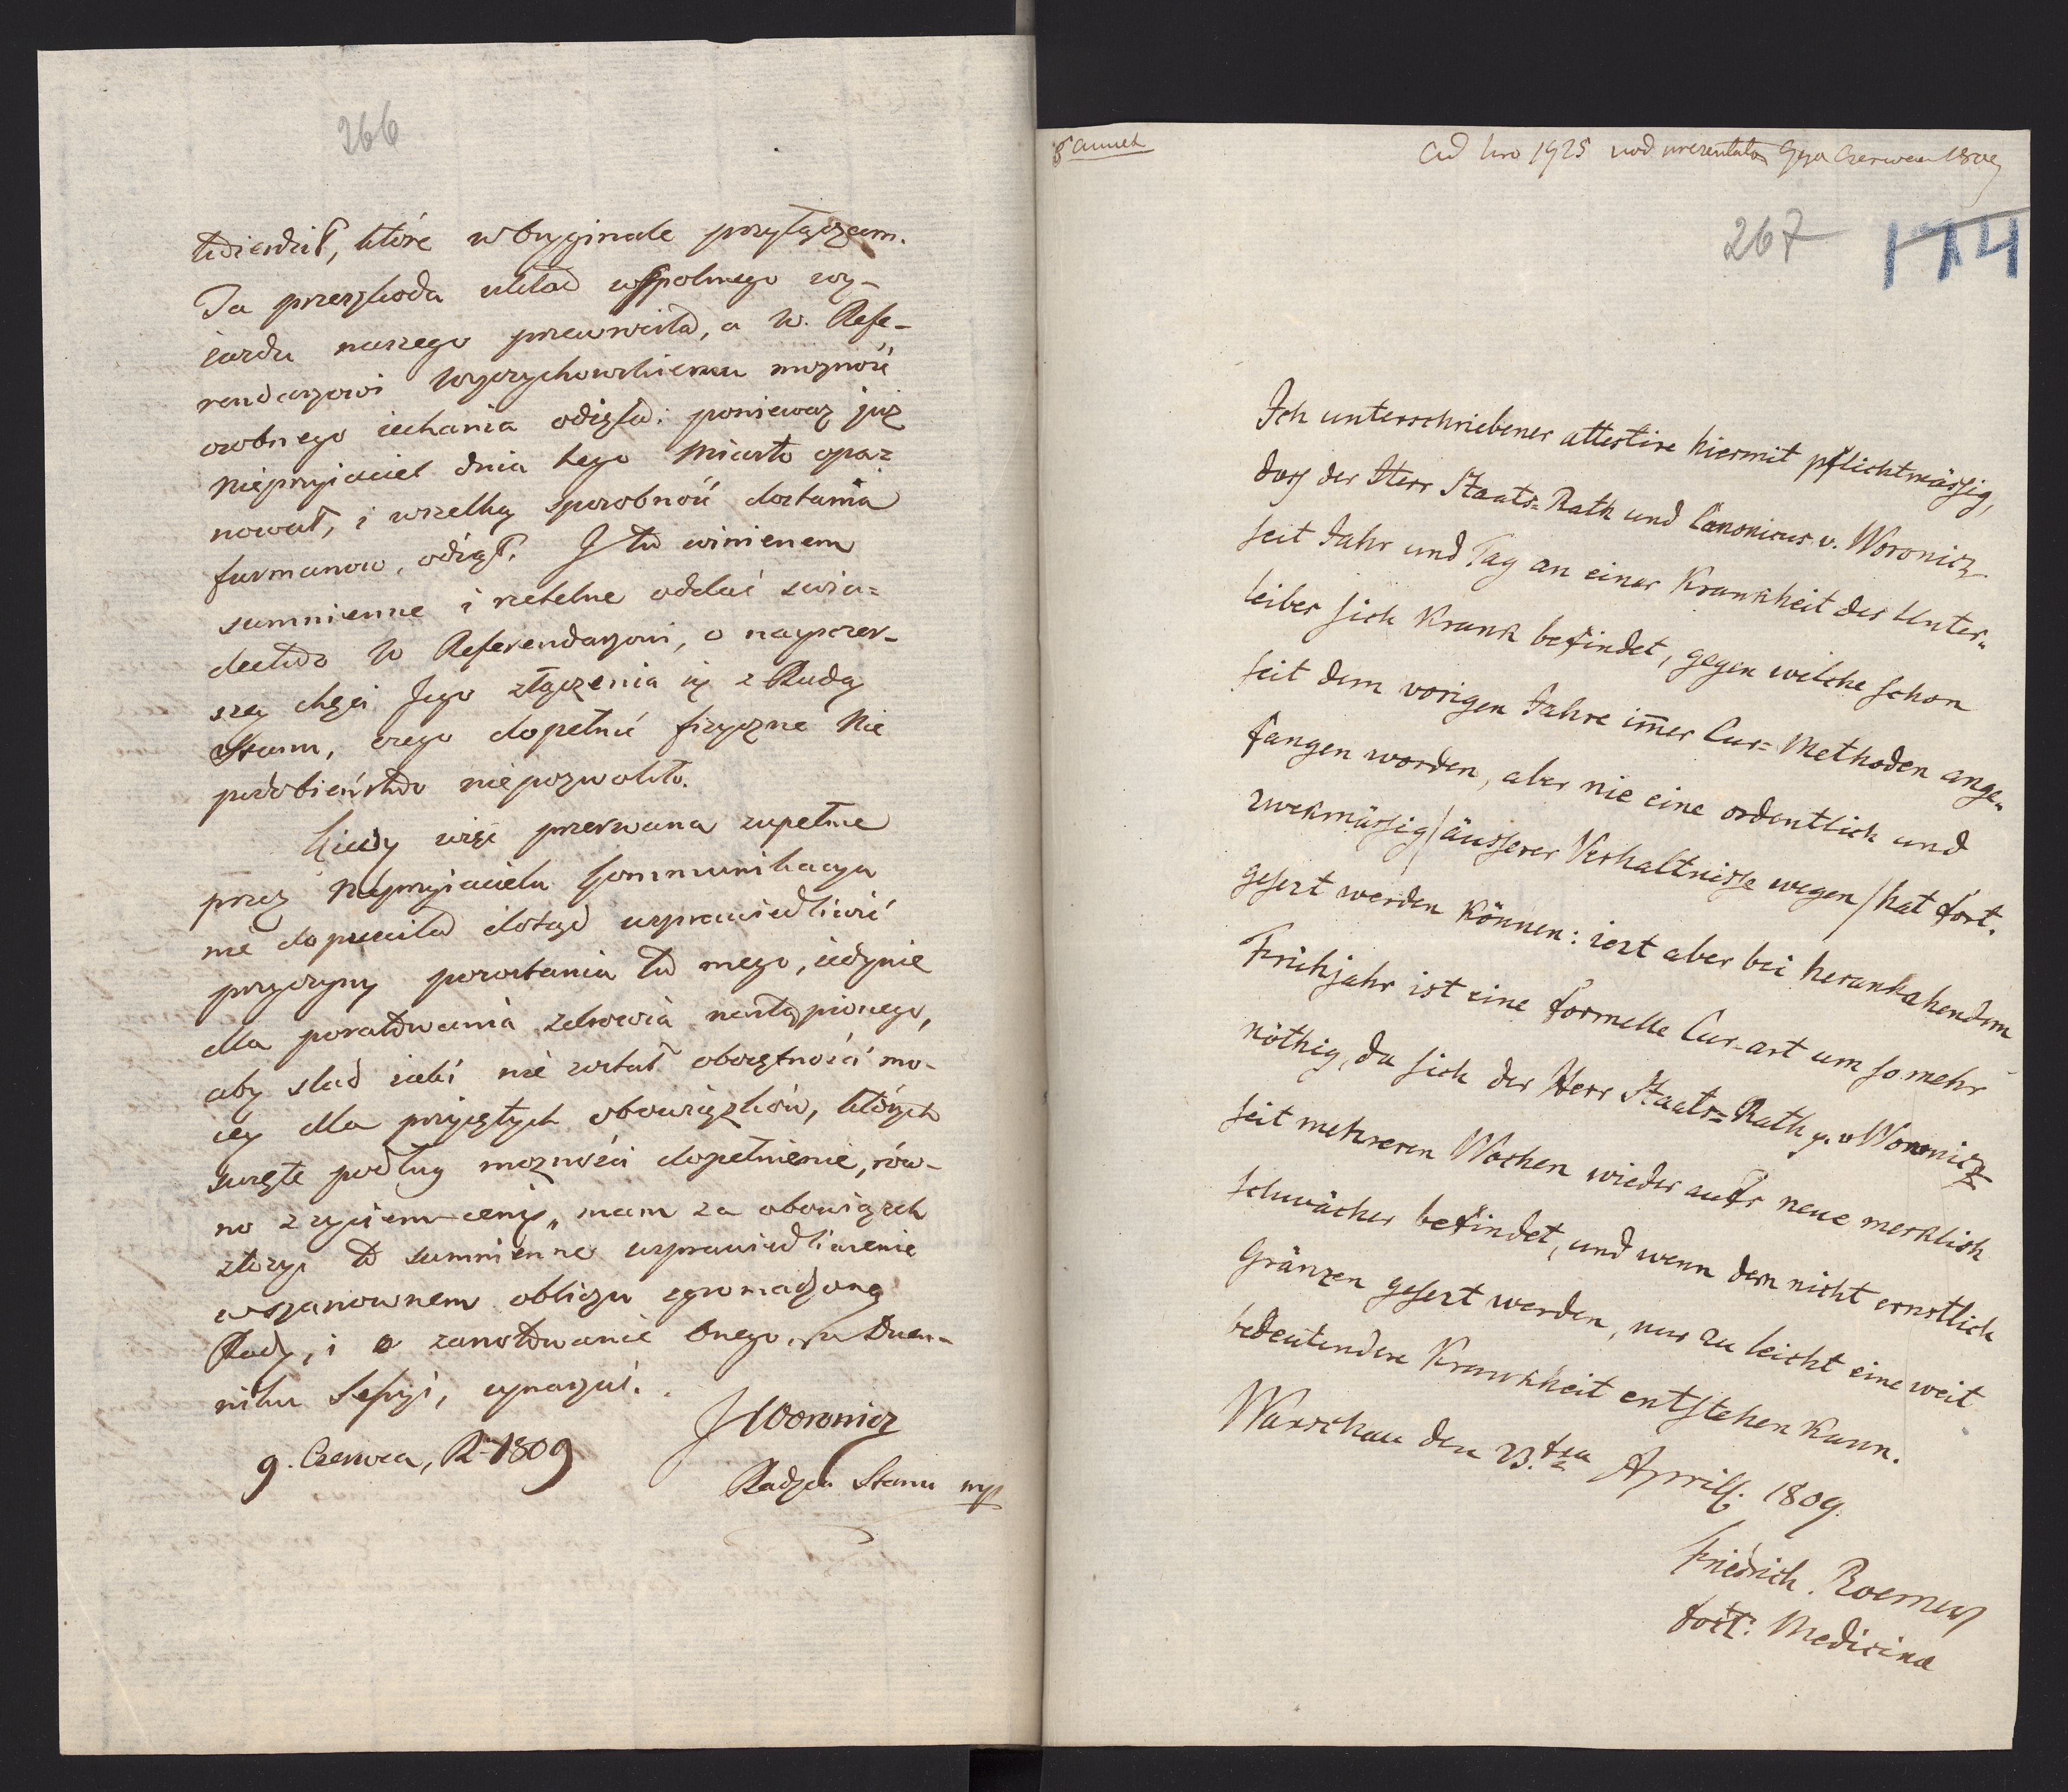 266
twierdził, które w oryginale przyłączam.
Ta przeszkoda układ wspolnego wy-
jazdu naszego przerwała, a W. Refe-
rendarzowi Wyczychowskiemu możność
osobnego iechania odięła: ponieważ już
Nieprzyiaciel dnia tego Miasto opa-
nował, i wszelką sposobność dostania
furmanow, odiął. I tu winienem
sumienne i rzetelne oddać swia-
dectwo W Referendarzowi, o nayszczer-
szey chęci Jego złączenia się z Radą
Stanu, czego dopełnić fizyczne Nie
podobieństwo niepozwoliło.
Kiedy więc przerwana zupełnie
przez Nieprzyiaciela kommunikacya
nie dopuściła dotąd usprawiedliwić
przyczyny pozostania tu mego, iedynie
dla poratowania zdrowia nastąpionego,
aby slad iakiś nie został oboiętności mo-
iey dla przyiętych obowiązków, których
święte podług możności dopełnienie, rów-
no z życiem cenię, mam za obowiązek
złożyć to sumnienne usprawiedliwienie
w szanownem obliczu zgromadzoney
Rady, i o zanotowanie onego w Dzien-
niku Sessyi, upraszać.
9. Czerwca, R. 1809
J Woronicz
Radzca Stanu mp
Annex
Ad Nro 1925 pod prezentatą 9go Czerwca 1809
267 174
Ich unterschriebener attestire hiermit pflichtmässig,
dass der Herr Staats=Rath und Canonicus v. Woronicz
seit Jahr und Tag an einer Krankheit des Unter=
leibes sich krank befindet, gegen welche schon
seit dem vorigen Jahre im̄er Cur=Methoden ange=
fangen worden, aber nie eine ordentlich und
zwekmässig /äusserer Verhaltnisse wegen/ hat fort.
gesezt werden können: iezt aber bei herannahendem
Frühjahr ist eine formelle Cur-art um so mehr
nöthig, da sich der Herr Staats=Rath p. v Woronicz
seit mehreren Wochen wieder aufs neue merklich
schwächer befindet, und wenn dem nicht ernstlich
Gränzen gesezt werden, nur zu leicht eine weit
bedeutendere Krankheit entstehen kann.
Warschau den 23.ten Aprill. 1809.
Friedrich. Roemer
Doct: Medicina